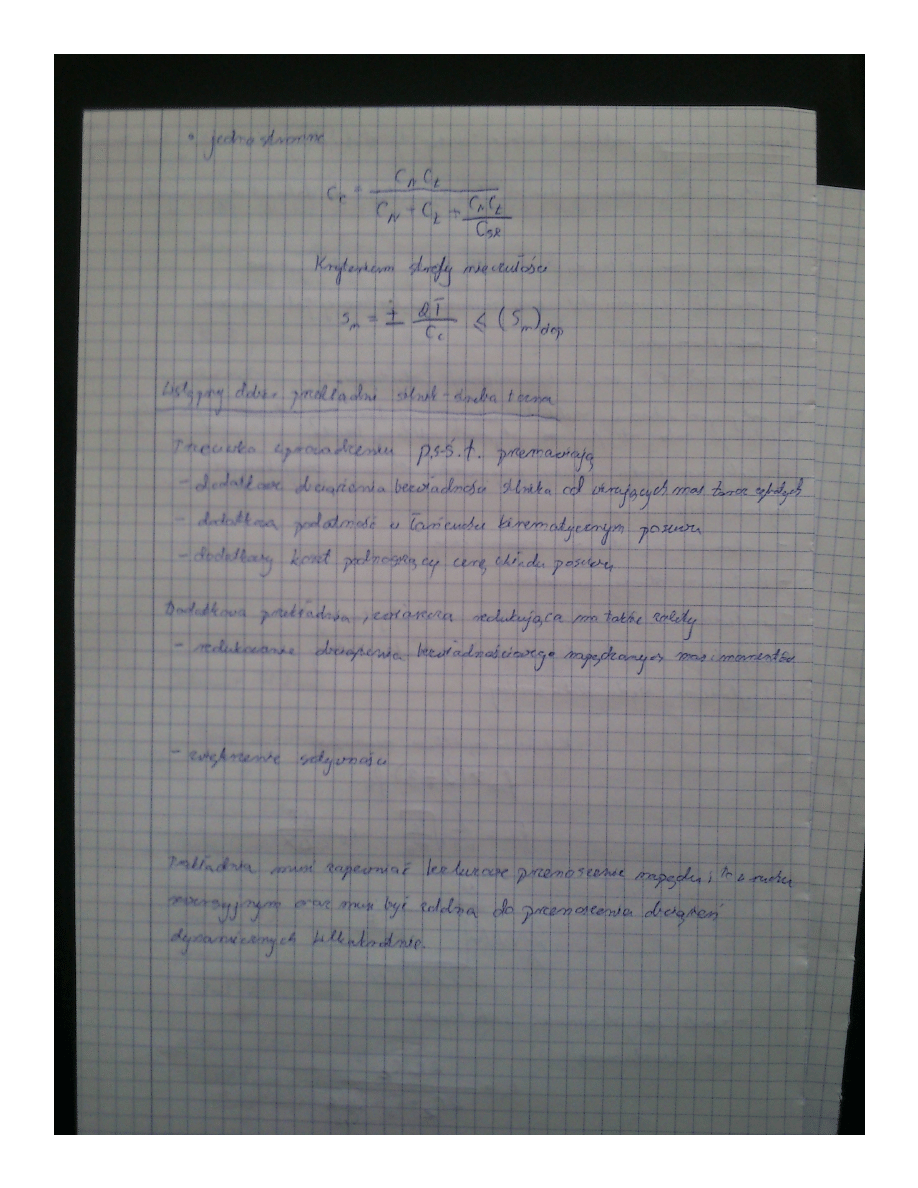 • jednostronne
C_c = \frac{C_N C_t}{C_N + C_t + \frac{C_N C_t}{C_{SR}}}
Kryterium strefy nieczułości
S_n = ± \frac{2T}{C_c} ≤ (S_n)_{dop}
Wstępny dobór przekładni silnik-śruba toczna
Przeciwko wprowadzeniu p.s-ś.t. przemawiają
- dodatkowe obciążenia bezwładności silnika od wirujących mas
- dodatkowa podatność w łańcuchu kinematycznym posuwu
- dodatkowy koszt podnoszący cenę układu posuwu
Dodatkowa przekładnia, redukująca ma także zalety
- redukowanie obciążenia bezwładnościowego napędzanych mas i momentów
- zwiększenie sztywności
Przekładnia musi zapewniać bezluzowe przenoszenie napędu, w ruchu
nawrotnym oraz musi być zdolna do przenoszenia obciążeń
dynamicznych